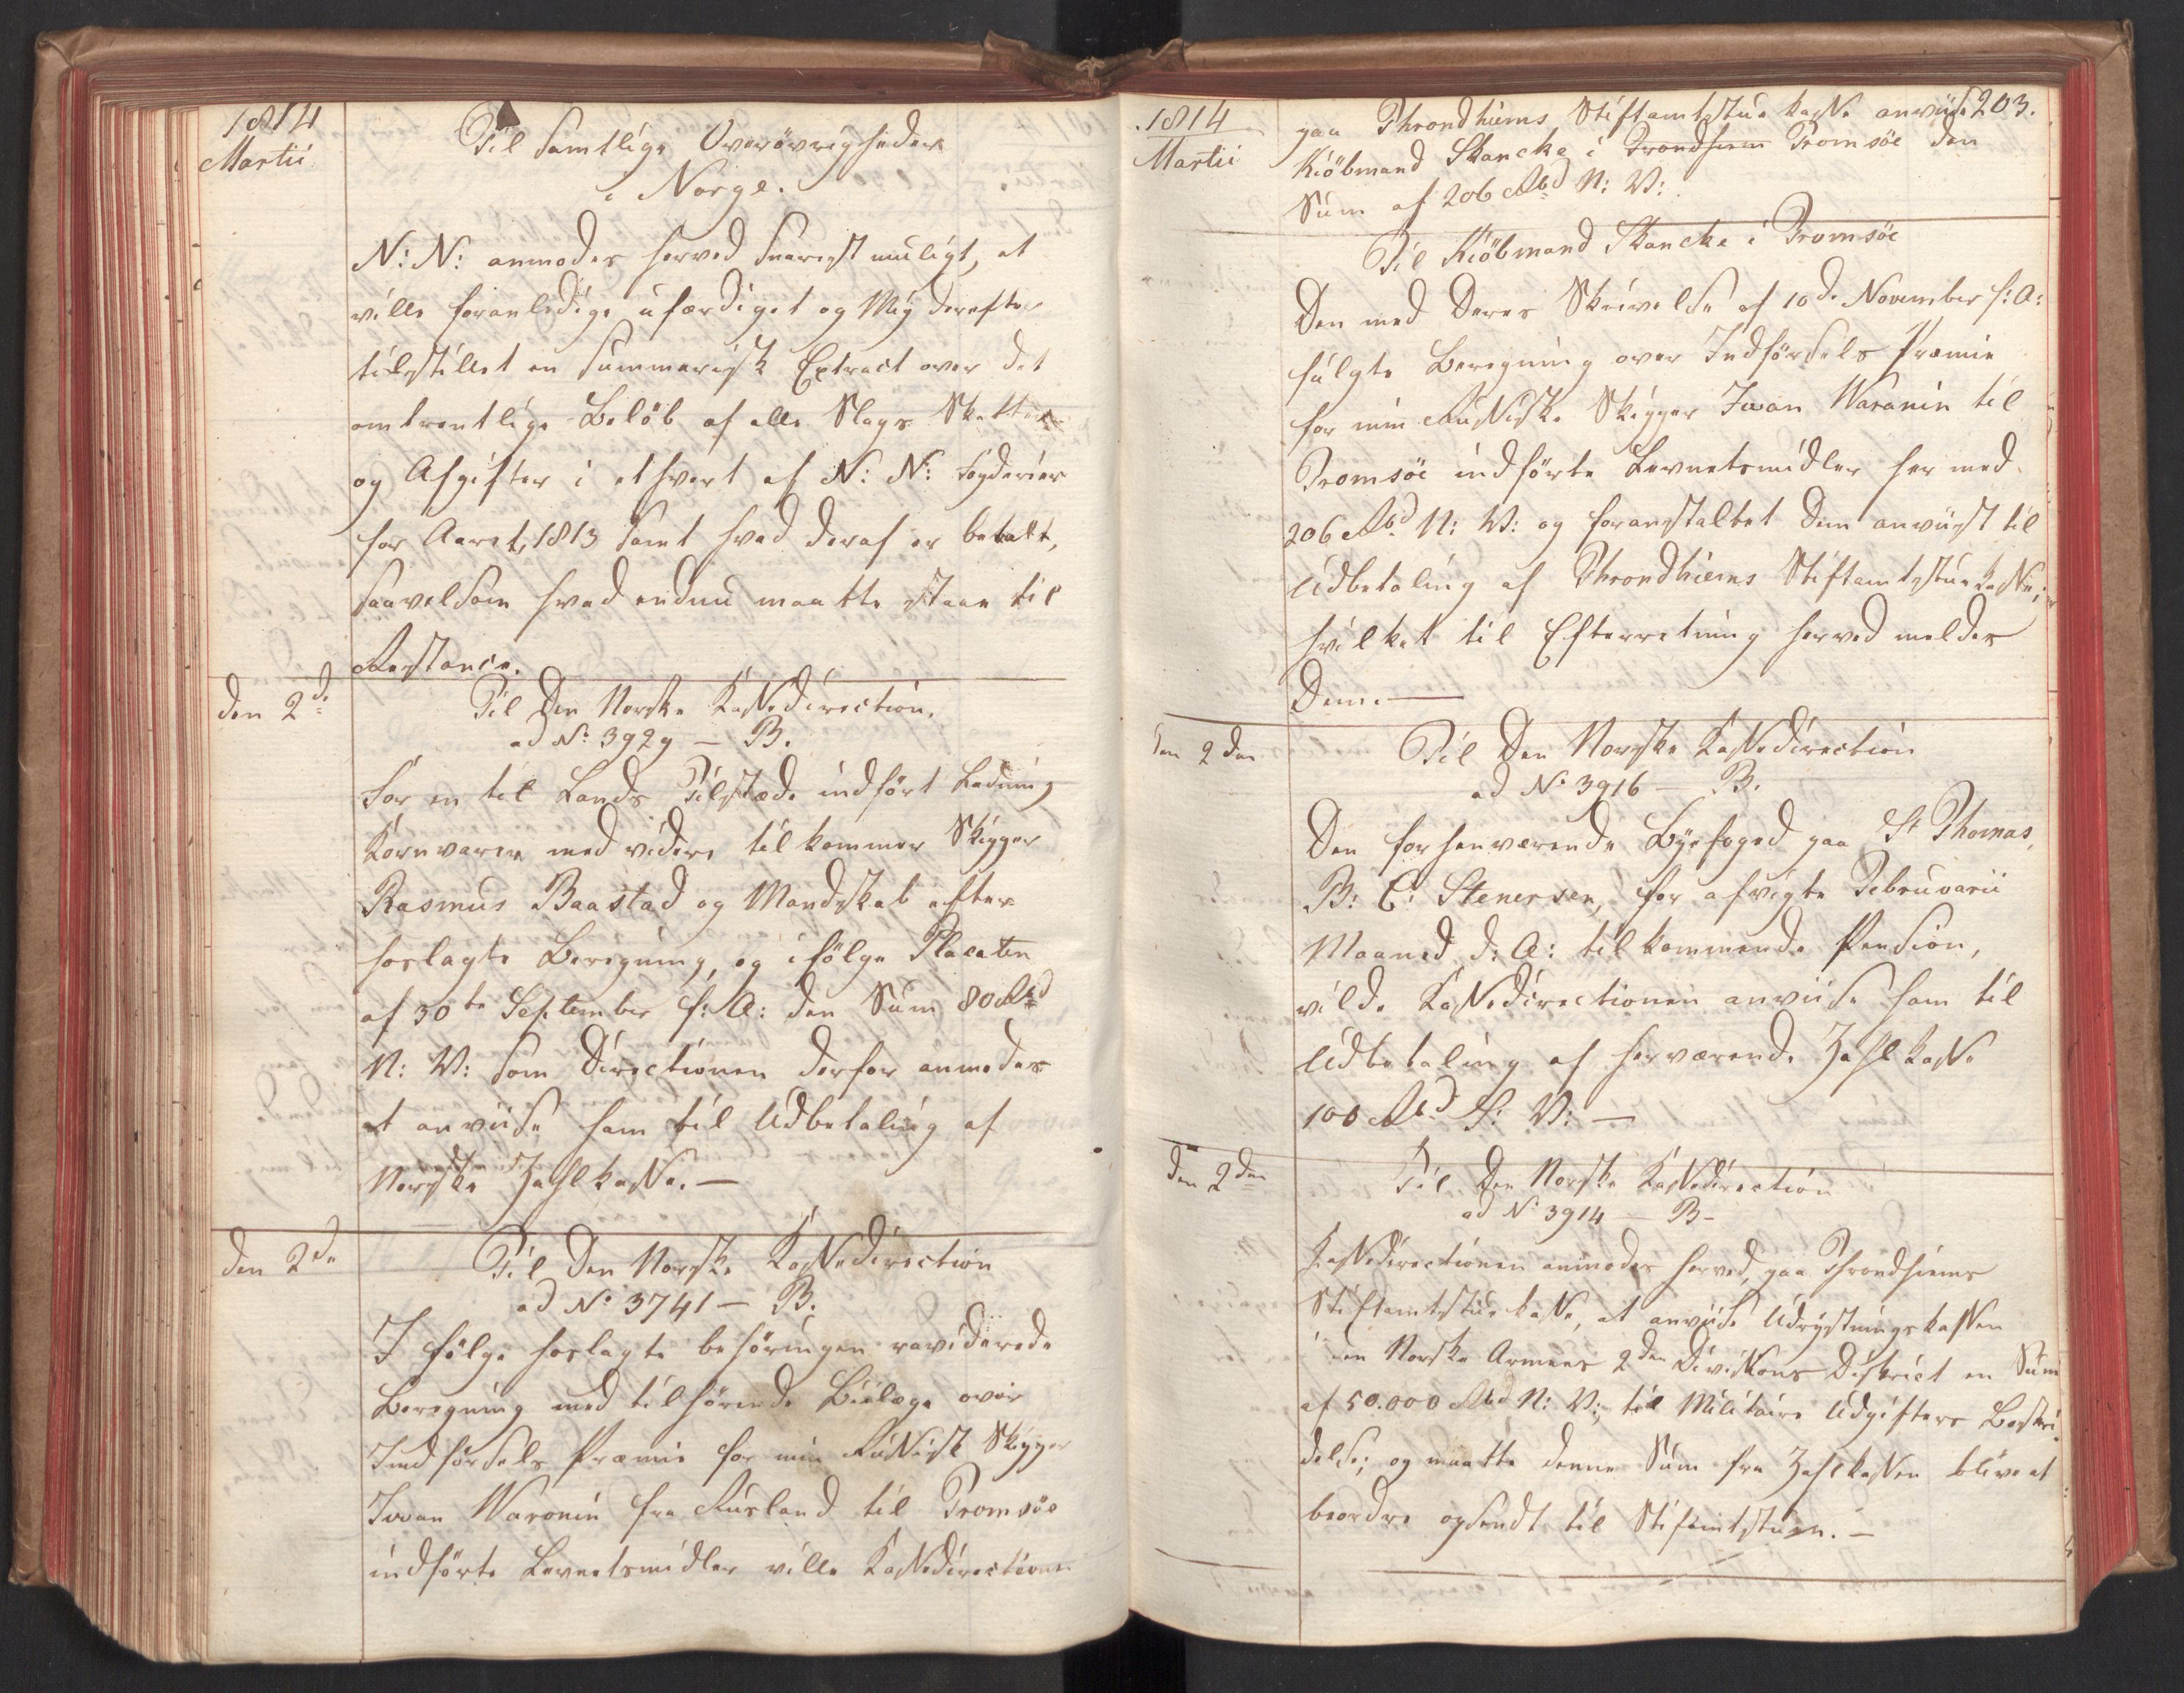 1814
Martii
Til samtlige Overøvrigheder
i Norge.
N: N: anmodes herved snarest muligt, at
ville foranledige ufærdiget og Mig derefter
tilstillet en summarisk Extract over det
omtrentlige Beløb af alle Slags Skatter
og Afgifter i ethvert af N: N: Fogderier
for Aaret 1813 samt hvad deraf er betalt,
saavelsom hvad endnu maatte staae til
Restance.
den 2de
Til Den Norske Kassedirection.
ad No 3929 — B.
For en til Lands Tilstæde indført Ladning
Kornvarer med videre tilkommer Skipper
Rasmus Baastad og Mandskab efter
hoslagte Beregning, og ifølge Placaten
af 30te September f: A: den Sum 80 Rbd
N: V: som Directionen derfor anmodes
at anviise ham til Udbetaling af
Norske Zahlkasse. —
den 2de
Til Den Norske Kassedirection
ad No 3741 — B.
I følge hoslagte behøringen reviderede
Beregning med tilhørende Biilage over
Indførsels Præmie for min Russisk Skipper
Iwan Waronin fra Rusland til Tromsøe
indførte Levnetsmidler ville Kassedirectionen
1814
Martii
203.
paa Throndhiems Stiftamtstue kasse anviise
Kiøbmand Skancke i Trondhiem Tromsøe den
Sum af 206 Rbd N: V:
Til Kiøbmand Skancke i Tromsøe
Den med Deres Skrivelse af 10de November f: A:
fulgte Beregning over Indførsels Præmie
for min Russiske Skipper Iwan Waranin til
Tromsøe indførte Levnetsmidler her med
206 Rbd N: V: og foranstaltet Dem anviist til
Udbetaling af Throndhiems Stiftamtstuekasse;
hvilket til Efterretning herved meldes
Dem. —
den 2den
Til Den Norske Kassedirection
ad No 3916 — B.
Den forhenværende Byefoged paa St Thomas,
B: C: Stenersen, for afvigte Februarii
Maaned d: A: tilkommende Pension,
vilde Kassedirectionen anviise ham til
Udbetaling af herværende Zahlkasse
100 Rbd S: V: —
den 2den
Til Den Norske Kassedirection
ad No 3914 — B —
Kassedirectionen anmodes herved, paa Throndhiems
Stiftamtstue kasse, at anviise Udrystningskassen
i den Norske Armees 2den Divisions District en Sum
af 50.000 Rbd N: V:, til Militaire Udgifters Bestri¬
delse; og maatte denne Sum fra Zahlkassen blive at
beordre opsendt til Stiftamtstuen. —